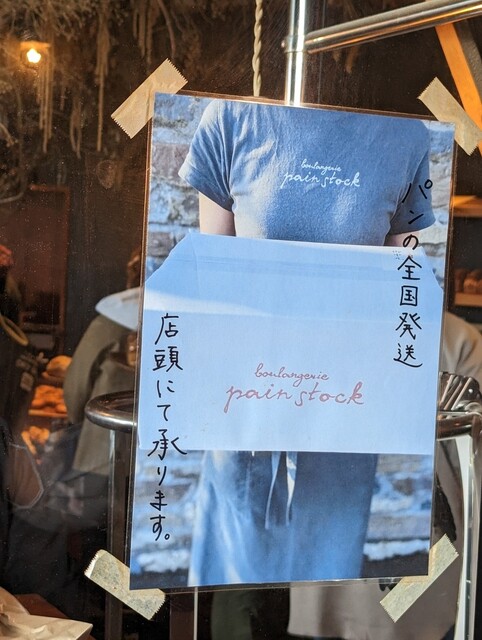 boulangerie
pain stock
パンの全国発送
boulangerie
pain stock
店頭にて承ります。